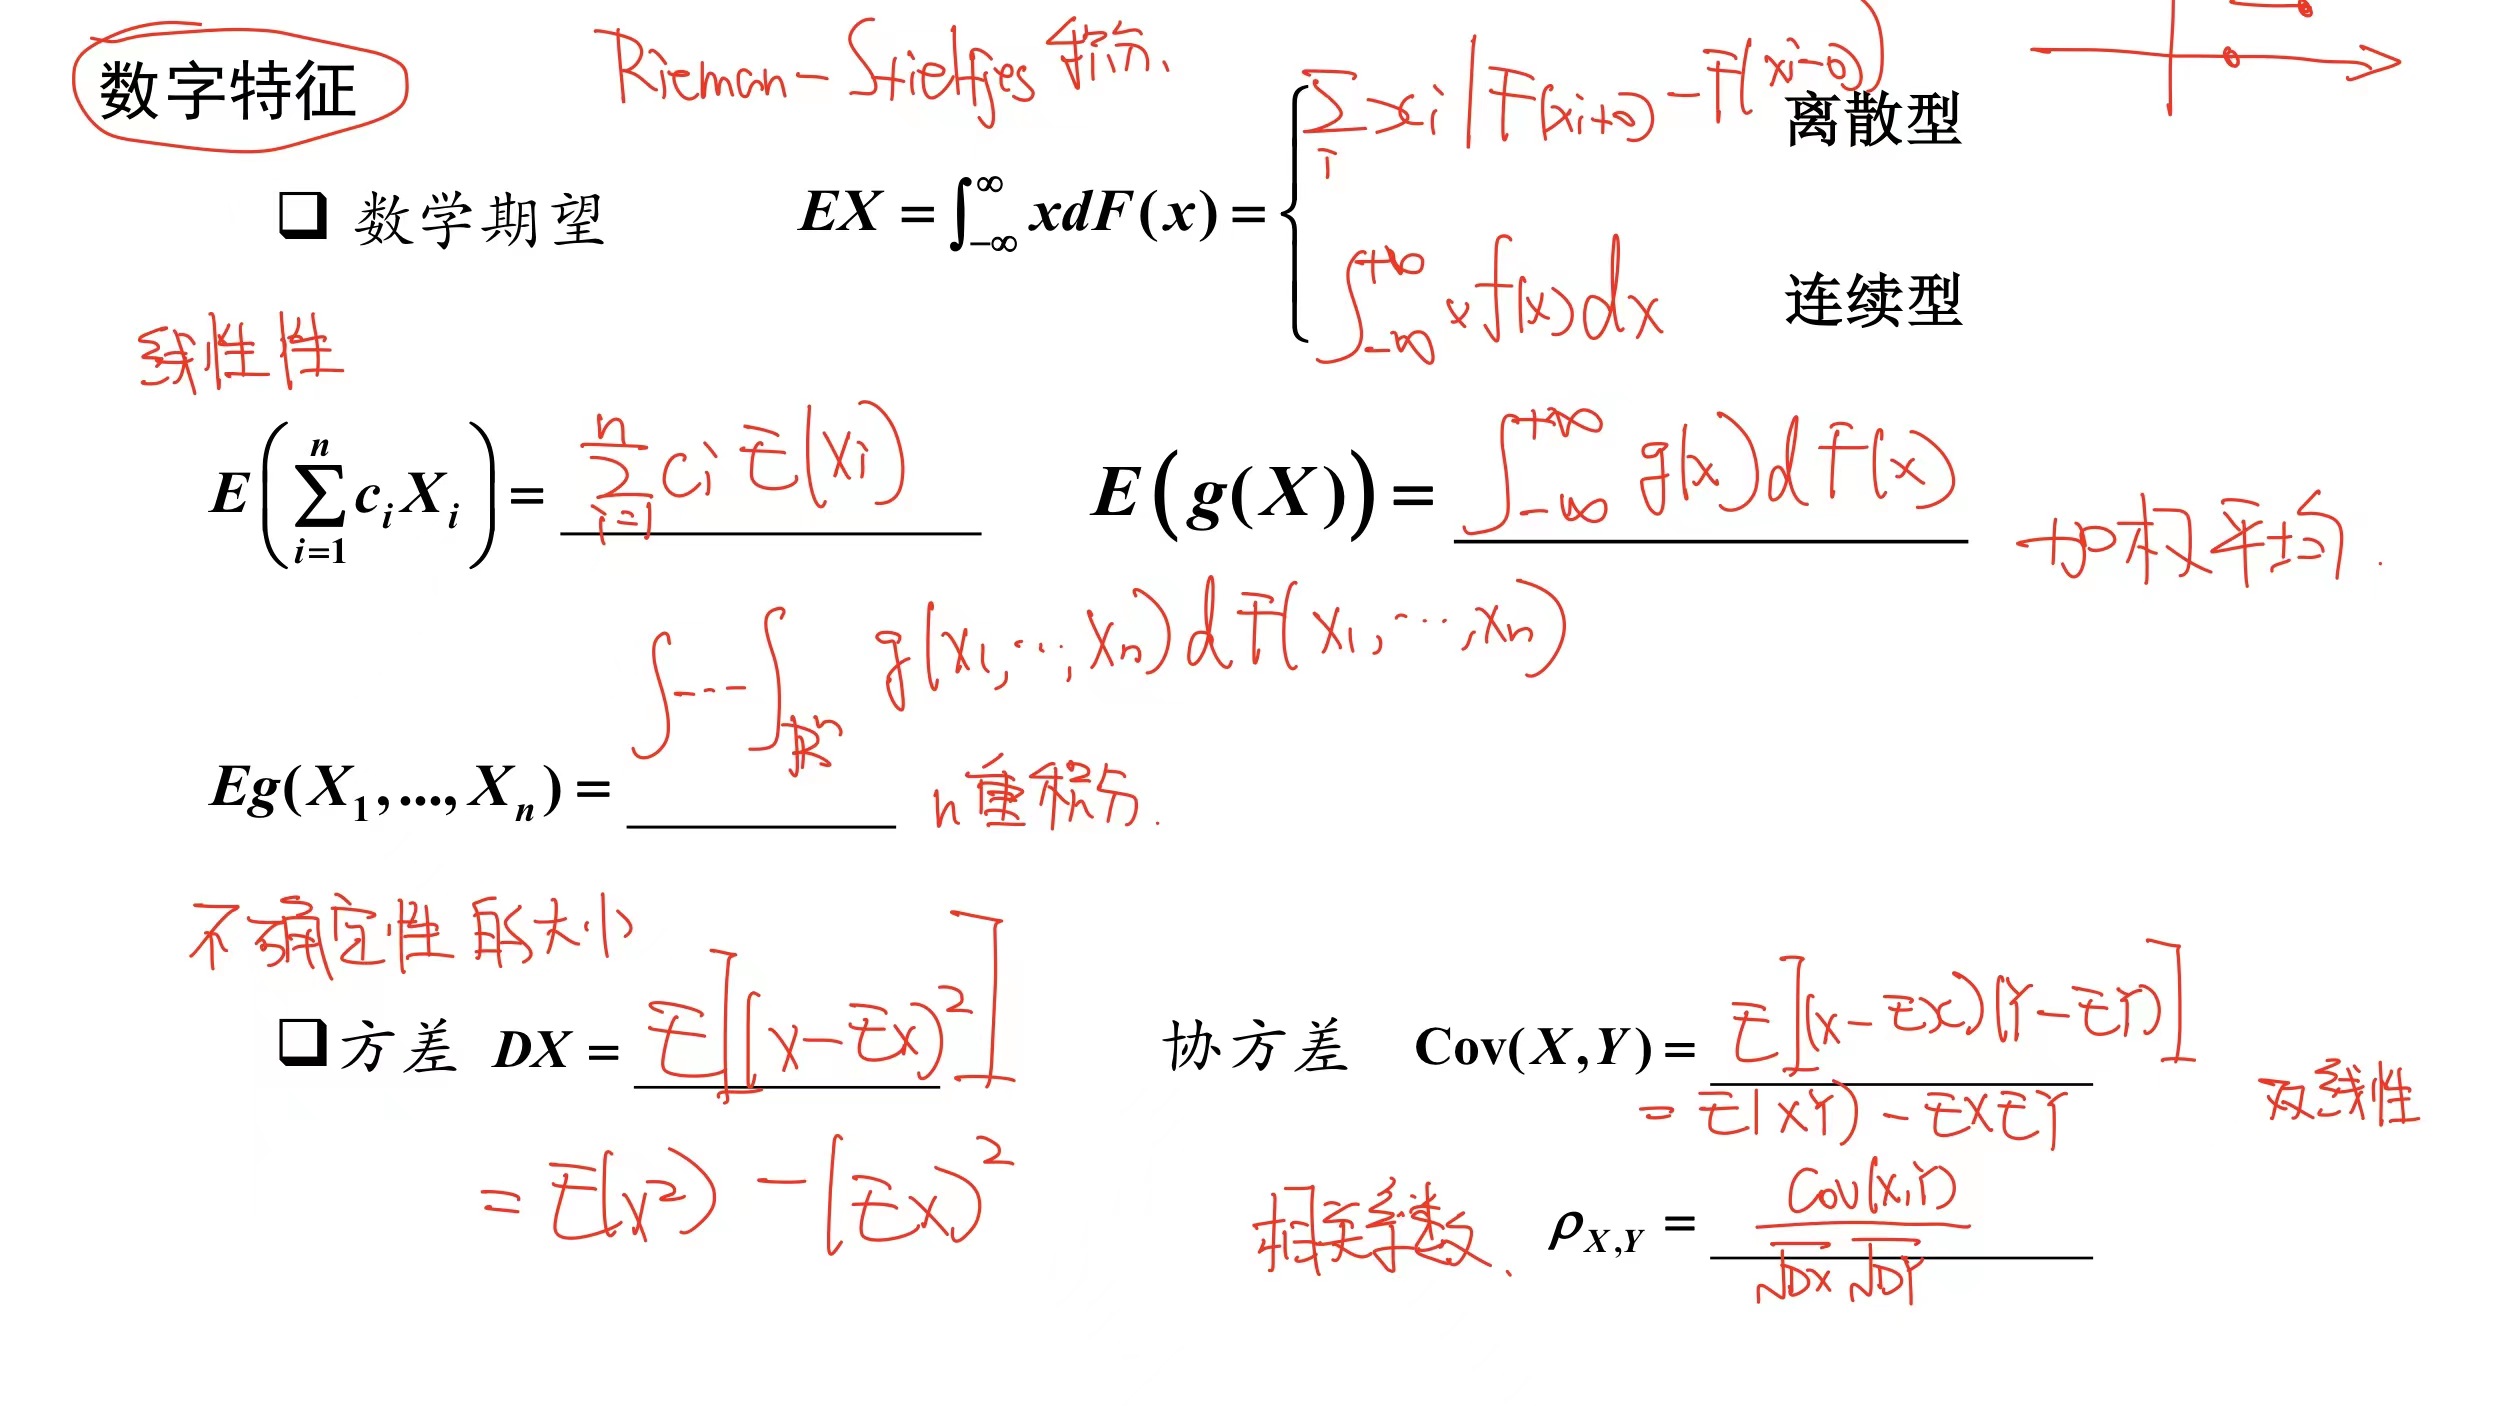 数字特征
Rieman-Stieltjes 积分.
❑ 数学期望 EX = ∫_{-∞}^{∞} xdF(x) = { ∑_i x_i (F(x_i+0) - F(x_i-0)) 离散型
∫_{-∞}^{+∞} x f(x) dx 连续型
线性性
E(∑_{i=1}^{n} c_i X_i) = ∑_{i=1}^{n} c_i E(X_i) E(g(X)) = ∫_{-∞}^{+∞} g(x) dF(x) 加权平均.
Eg(X_1,...,X_n) = ∫---∫_{R^n} g(x_1,...,x_n) dF(x_1,...,x_n)
n重积分.
不确定性的大小
❑ 方差 DX = E[(X-EX)^2] 协方差 Cov(X,Y) = E[(X-EX)(Y-EY)]
= E(XY) - EXEY 双线性
= E(X^2) - (EX)^2
相关系数. ρ_{X,Y} = Cov(X,Y) / √DX √DY